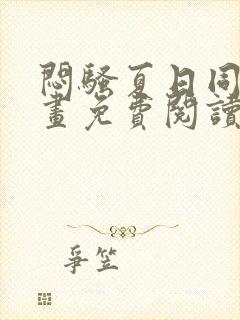 悶騷夏日同
畫免費閱讀
爭笠